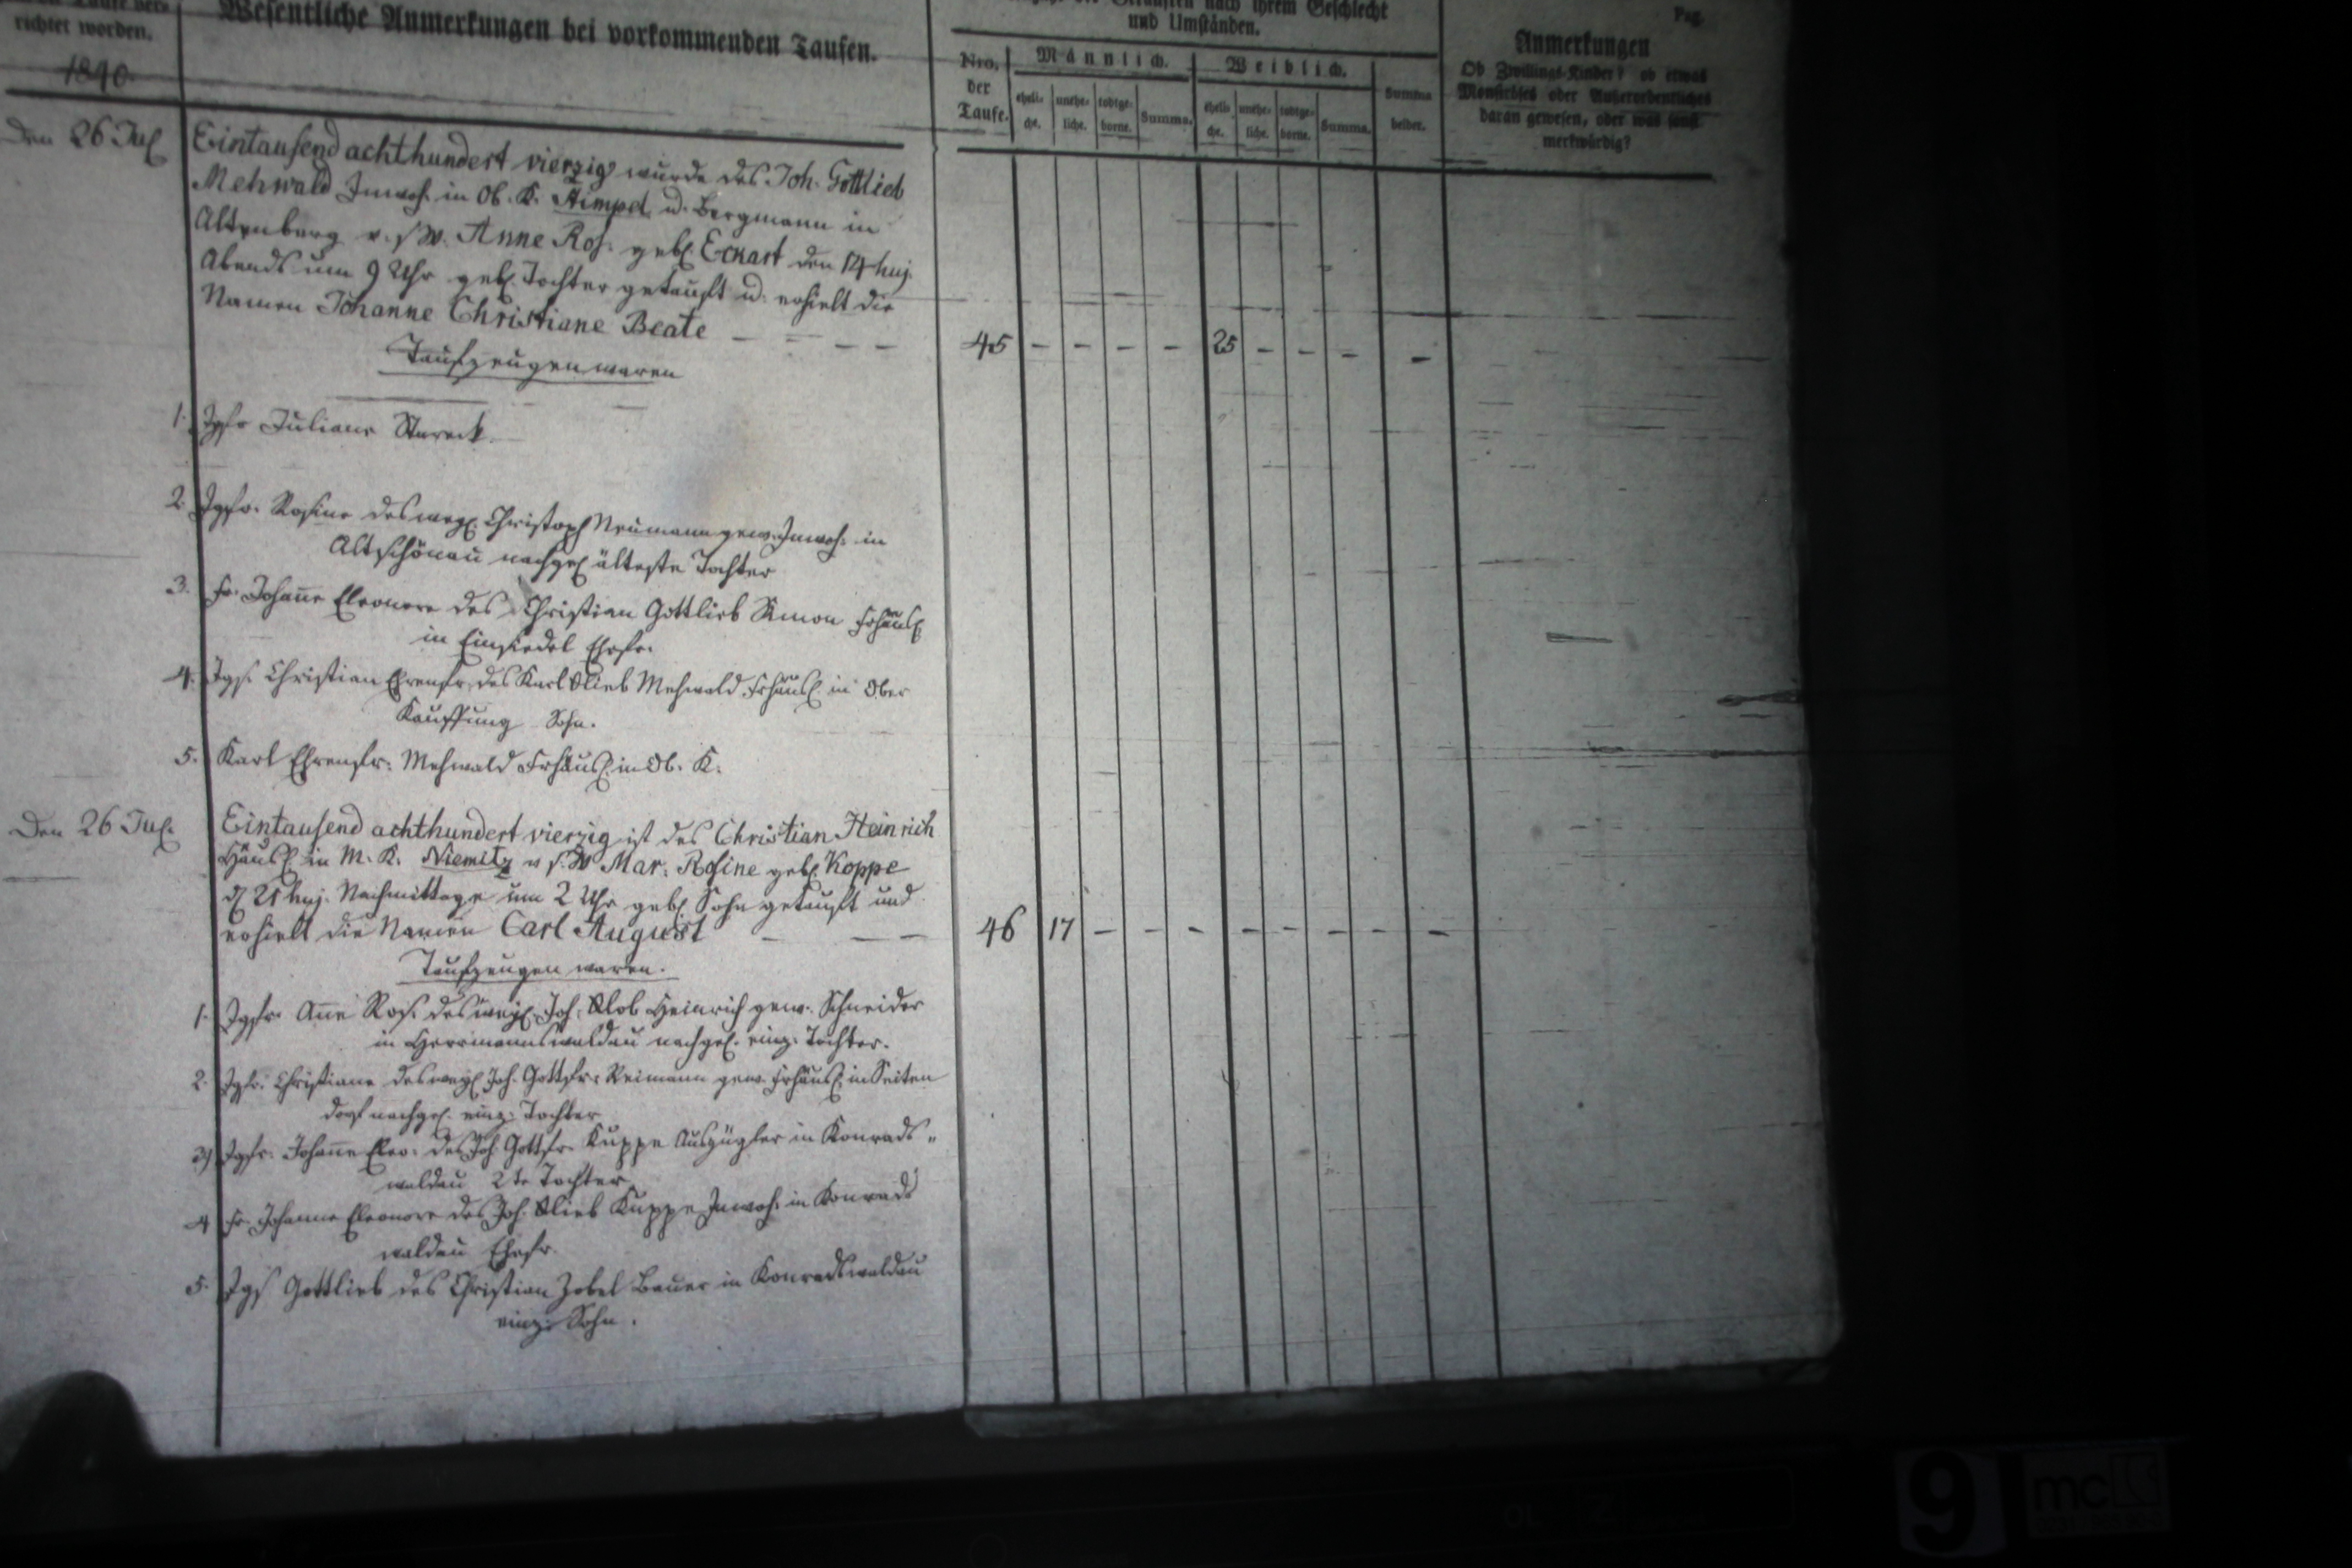 richtet worden.
1840.
Wesentliche Anmerkungen bei vorkommenden Taufen.
nach ihrem Geschlecht
und Umständen.
Nro.
der
Taufe.
Männlich.
eheli-
che.
unehe-
liche.
todtge-
borne.
Summa.
Weiblich.
eheli-
che.
unehe-
liche.
todtge-
borne.
Summa.
Summa
beider.
Pag.
Anmerkungen
Ob Zwillings-Kinder? ob etwas
Monströses oder Außerordentliches
daran gewesen, oder was sonst
merkwürdig?
Den 26 Jul.
Eintausend achthundert vierzig wurde des Joh. Gottlieb
Mehwald Inwoh. in Ob. K. Stimpel u. Bergmann in
Altenberg v. s. W. Anne Ros. geb. Eckart den 14 huj.
Abends um 9 Uhr geb. Tochter getauft u. erhielt die
Namen Johanne Christiane Beate – – – –
45 – – – – 25 – – – –
Taufzeugen waren
1. Jgfr Juliane
2. Jgfr. Rosine des weyl. Christoph Neumann gew. Inwoh. in
Altschönau nachgel. älteste Tochter
3. Fr. Johañe Eleonore des Christian Gottlieb Simon Frhäusl.
in Einsiedel Ehefr.
4. Jgs. Christian Ehrenfr. des Karl Glieb Mehwald Frhäusl. in Ober
Kauffung Sohn.
5. Karl Ehrenfr. Mehwald Frhäusl. in Ob. K.
Den 26 Jul.
Eintausend achthundert vierzig ist des Christian Heinrich
Häusl. in M. K. Niemitz v. s. W Mar. Rosine geb. Koppe
d. 21 huj. Nachmittage um 2 Uhr geb. Sohn getauft und
erhielt die Namen Carl August – – –
46 17 – – – – – – – –
Taufzeugen waren.
1. Jgfr. Añe Ros. des weyl. Joh. Glob Heinrich gew. Schneider
in Herrmannswaldau nachgel. einz. Tochter.
2. Jgfr. Christiane des weyl. Joh. Gottfr. Reimann gew. Frhäusl. in Seiten
dorf nachgel. einz. Tochter
3) Jgfr. Johañe Eleo. des Joh. Gottfr. Kuppe Auszügler in Konrads„
waldau 2te Tochter
4 Fr. Johanne Eleonore des Joh. Glieb Kuppe Inwoh. in Konrads
waldau Ehefr.
5. Jgs Gottlieb des Christian Zobel Bauer in Konradswaldau
einz. Sohn.
9
mc